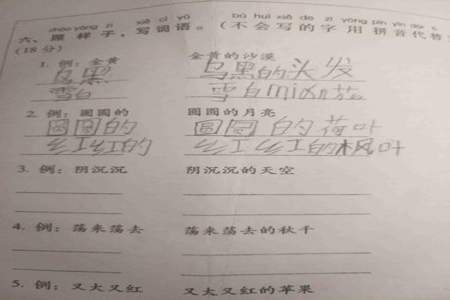 zhào yàng zi xiě cí yǔ bú huì xiě de zì yòng pīn yīn dài
六、照样子,写词语。(不会写的字用拼音代替
(18分)
1. 例:金黄 金黄的沙漠
乌黑 乌黑的头发
雪白 雪白mián花
2. 例:圆圆的 圆圆的月亮
圆圆的 圆圆的荷叶
红红的 红红的枫叶
3. 例:阴沉沉 阴沉沉的天空
4. 例:荡来荡去 荡来荡去的秋千
5. 例:又大又红 又大又红的苹果